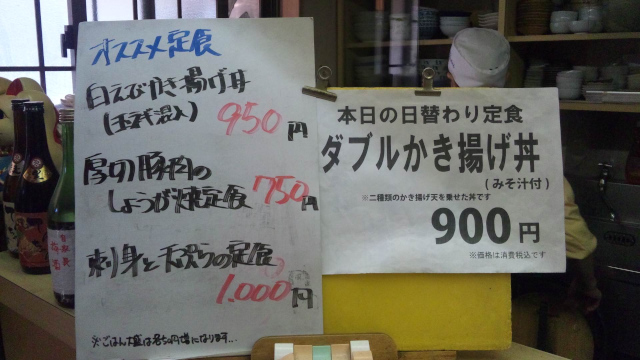 オススメ定食
白えびかき揚げ丼
(玉子混入) 950円
厚切豚肉の
しょうが焼定食 750円
刺身と天ぷらの定食
1.000円
本日の日替わり定食
ダブルかき揚げ丼
(みそ汁付)
※二種類のかき揚げ天を乗せた丼です
900円
※価格は消費税込です